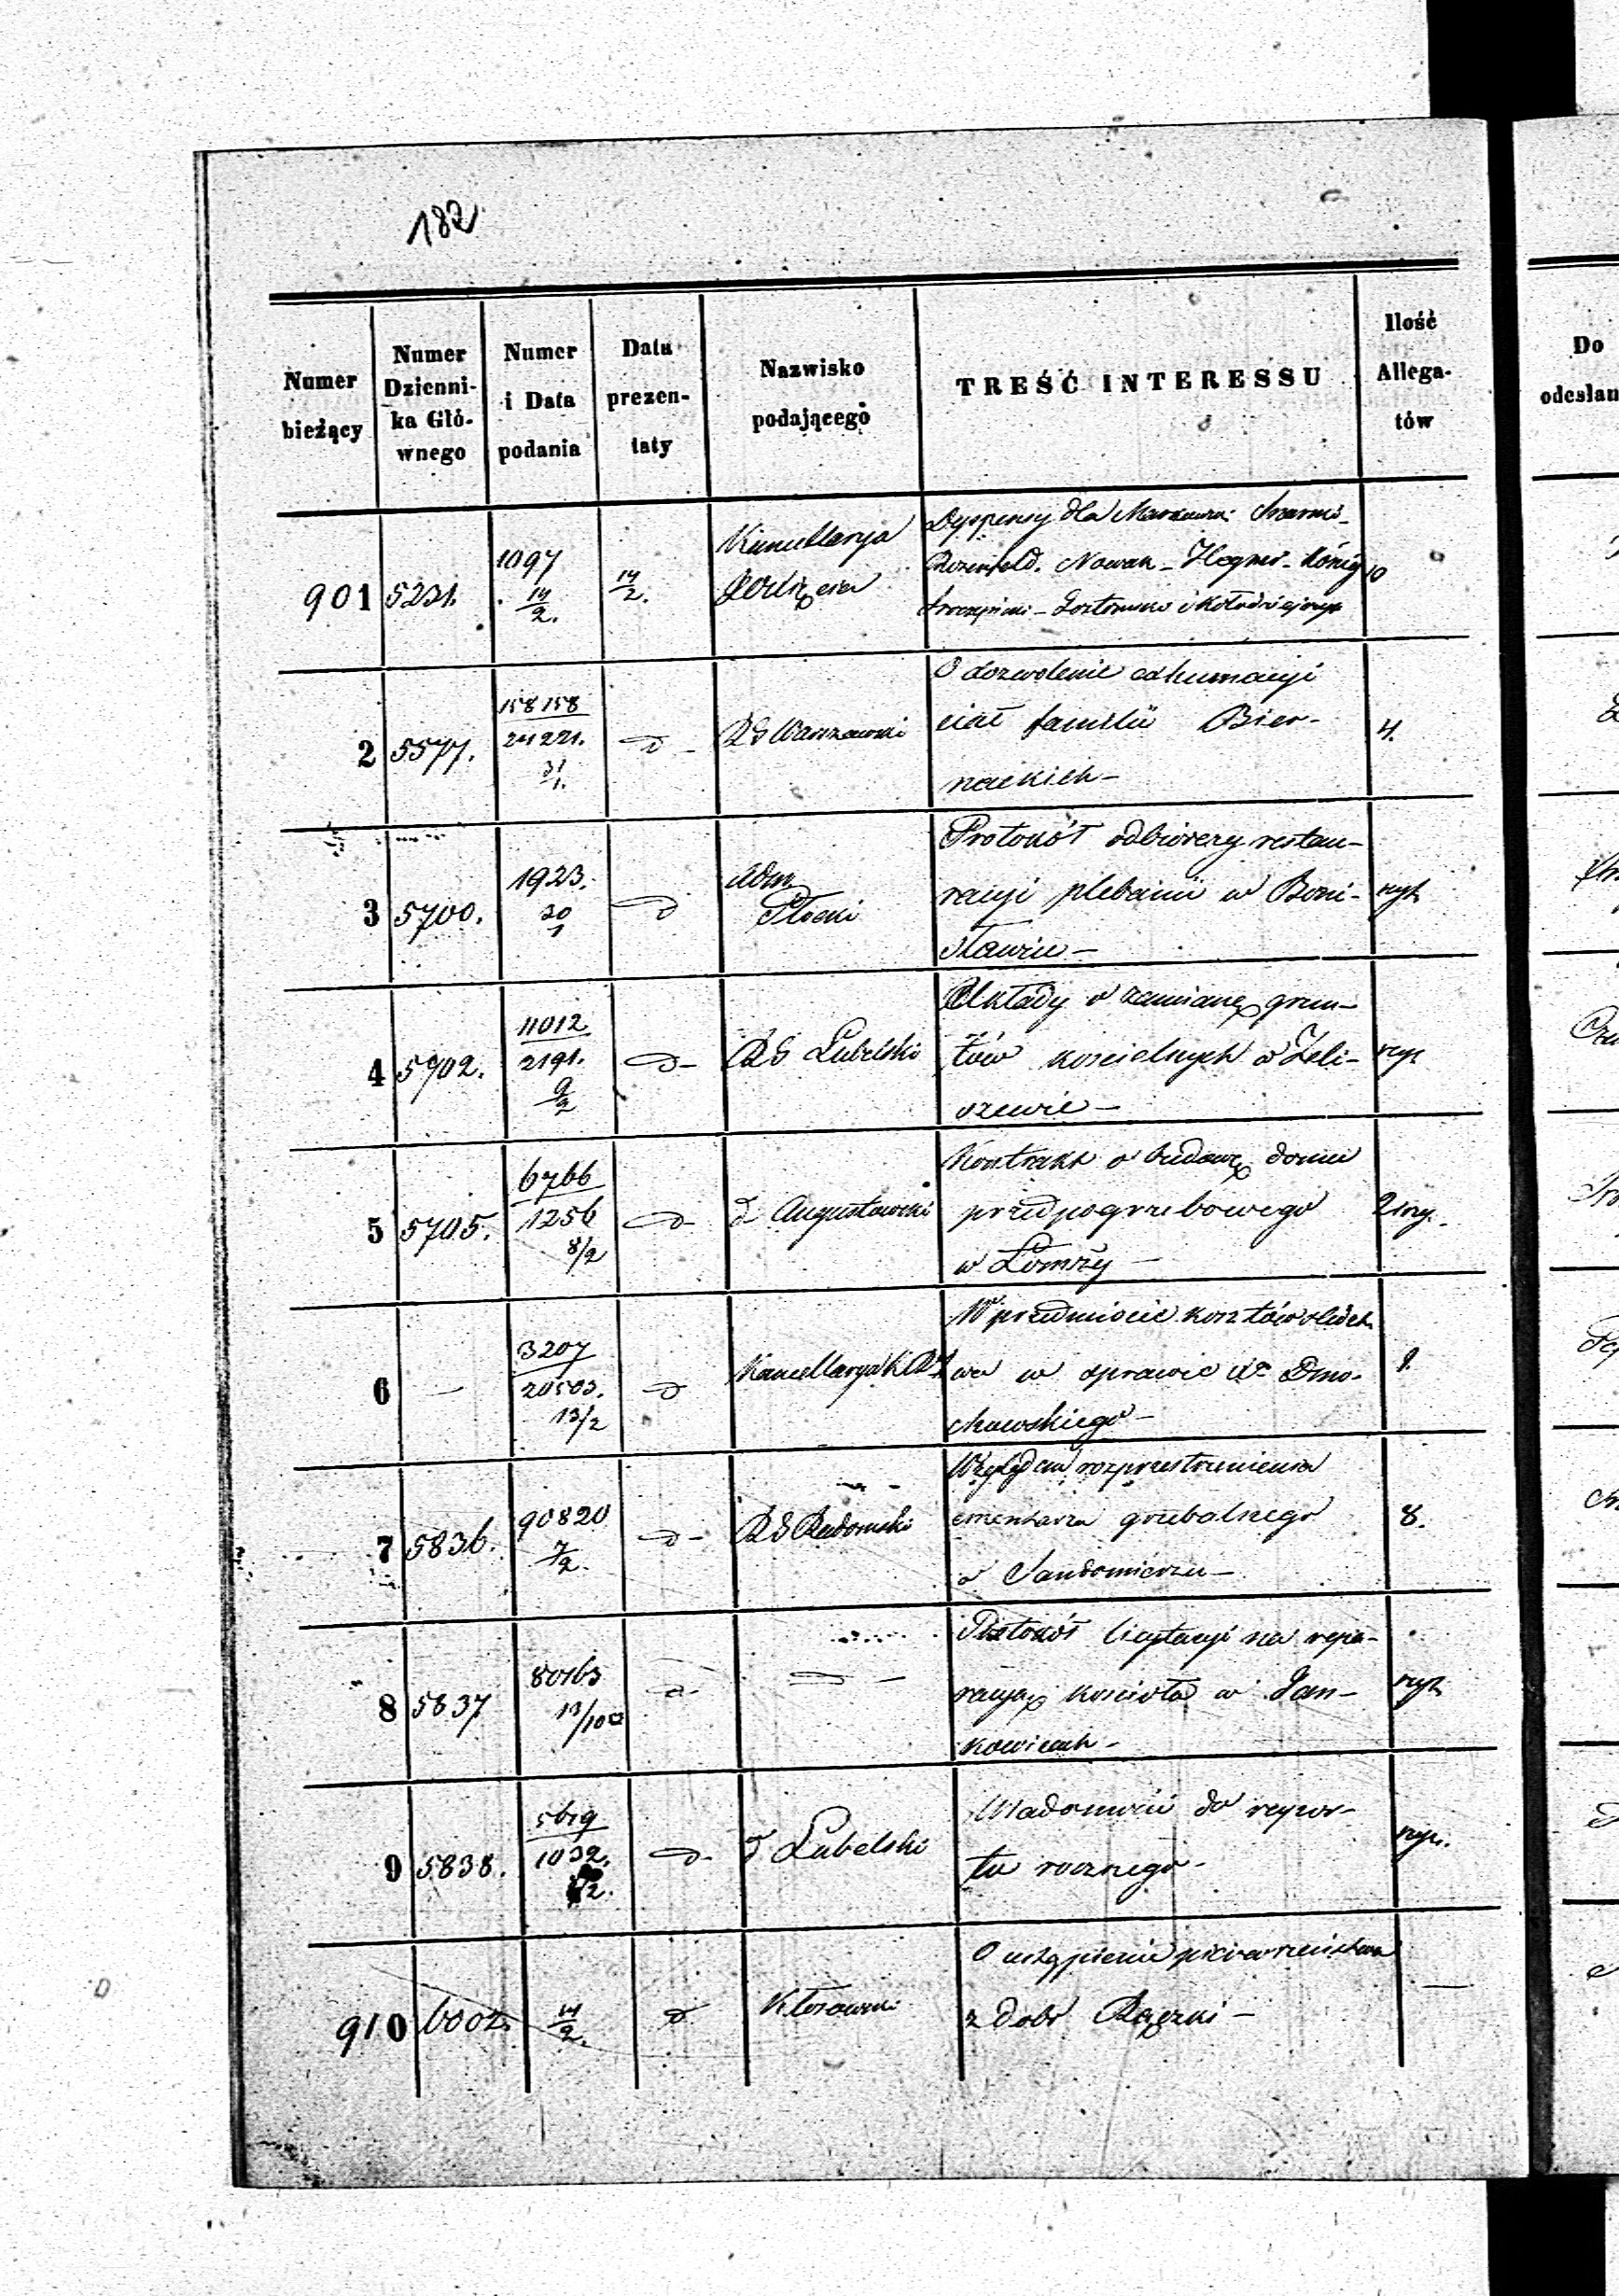 182
Numer bieżący
Numer Dzienni-ka Głó-wnego
Numer i Data podania
Data prezen-taty
Nazwisko podającego
TREŚĆ INTERESSU
Ilość Allega-tów
Do odesłan
901 5231. 1097 14/2. 14/2. Kancellarya
Dyspensy dla
Rozenfeld. Nowak - Hegner - König 10
i Kołodziejczyk
2 5577. 158158 24221. 31/1. d - RG Warszawski
O dozwolenie exhumacyi
ciał familii Bier-
nackich - 4.
3 5700. 1923. 30/1 d Adm Płocki
Protokół odbiorczy restau-
racyi plebanii w Boni-
sławiu - ryt
4 5902. 11012 2191. 9/2 d - RG Lubelski
Układy o zamianę grun-
tów kościelnych w Żeli-
szewie -
5 5705. 6766 1256 8/2 d d Augustowski
Kontrakt o budowę domu
przedpogrzebowego
w Łomży -
6 — 3207 20503. 13/2 d Kancellarya
W przedmiocie kosztów śledzt
wa w sprawie Xa Dmo-
chowskiego - 1.
7 5836. 90820 7/2. d - RG Radomski
Względem rozprzestrzenienia
cmentarza grzebalnego
w Sandomierzu - 8.
8 5837 80163 13/10 d - —
Protokół licytacyi na repa-
racyą kościoła w Jan-
kowicach - ryt
9 5838. 5619 1032. d - d Lubelski
Wiadomości do rapor-
tu rocznego -
910 6002. 14/2. d Kłosowski
O ustąpienie
z dóbr Rączki - —